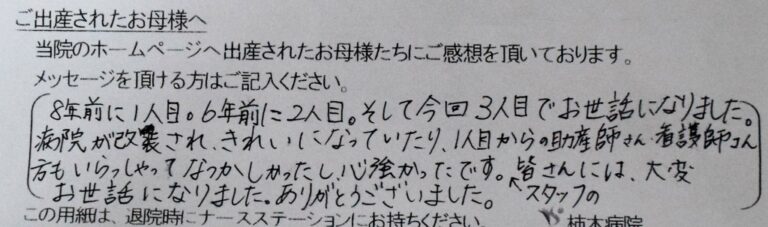 ご出産されたお母様へ
当院のホームページへ出産されたお母様たちにご感想を頂いております。
メッセージを頂ける方はご記入ください。
8年前に1人目。6年前に2人目。そして今回3人目でお世話になりました。
病院が改装され、きれいになっていたり、1人目からの助産師さん・看護師さん
方もいらっしゃってなつかしかったし、心強かったです。皆さんには、大変
お世話になりました。ありがとうございました。 スタッフの
この用紙は、退院時にナースステーションにお持ちください。 柿木病院